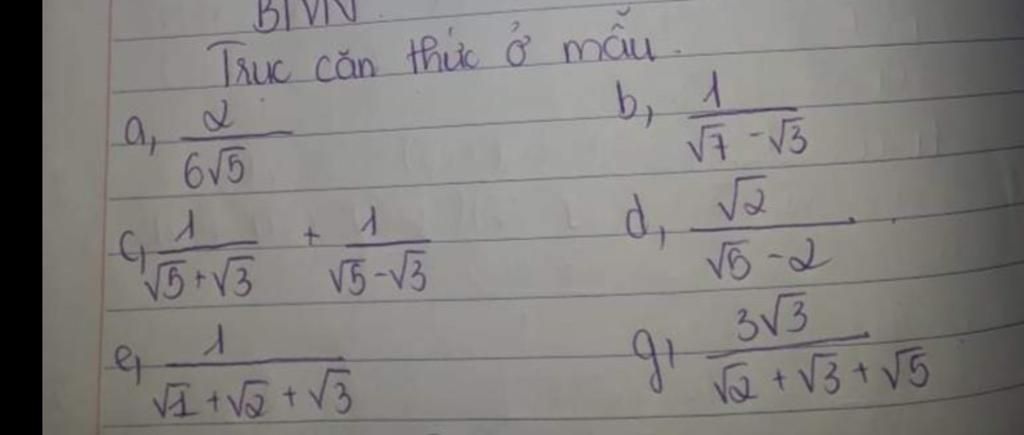 BTVN
Trục căn thức ở mẫu.
a, 2/(6√5) b, 1/(√7 - √3)
c, 1/(√5+√3) + 1/(√5-√3) d, √2/(√5 - 2)
e, 1/(√1 + √2 + √3) g, 3√3/(√2 + √3 + √5)